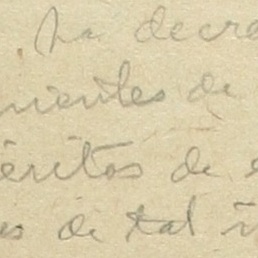 ha decre
nientes de
éritos de e
es de tal i